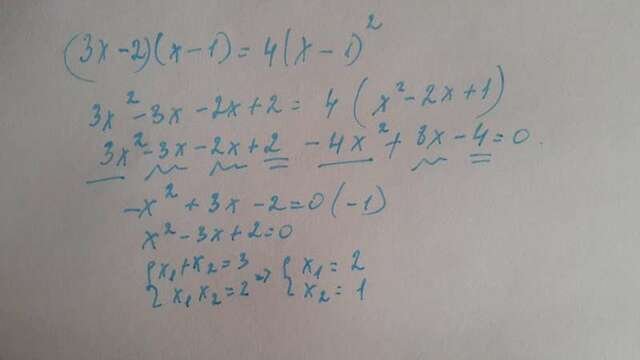 (3x-2)(x-1)=4(x-1)²
3x²-3x-2x+2=4(x²-2x+1)
3x²-3x-2x+2-4x²+8x-4=0.
-x²+3x-2=0(-1)
x²-3x+2=0
{x₁+x₂=3 => {x₁=2
{x₁x₂=2 {x₂=1